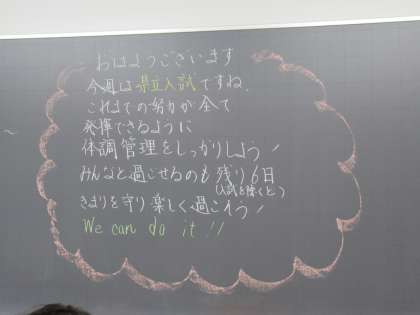 おはようございます
今週は県立入試ですね。
これまでの努力が全て
発揮できるように
体調管理をしっかりしよう!
みんなと過ごせるのも残り6日
(入試を除くと)
きまりを守り楽しく過ごそう!
We can do it!!